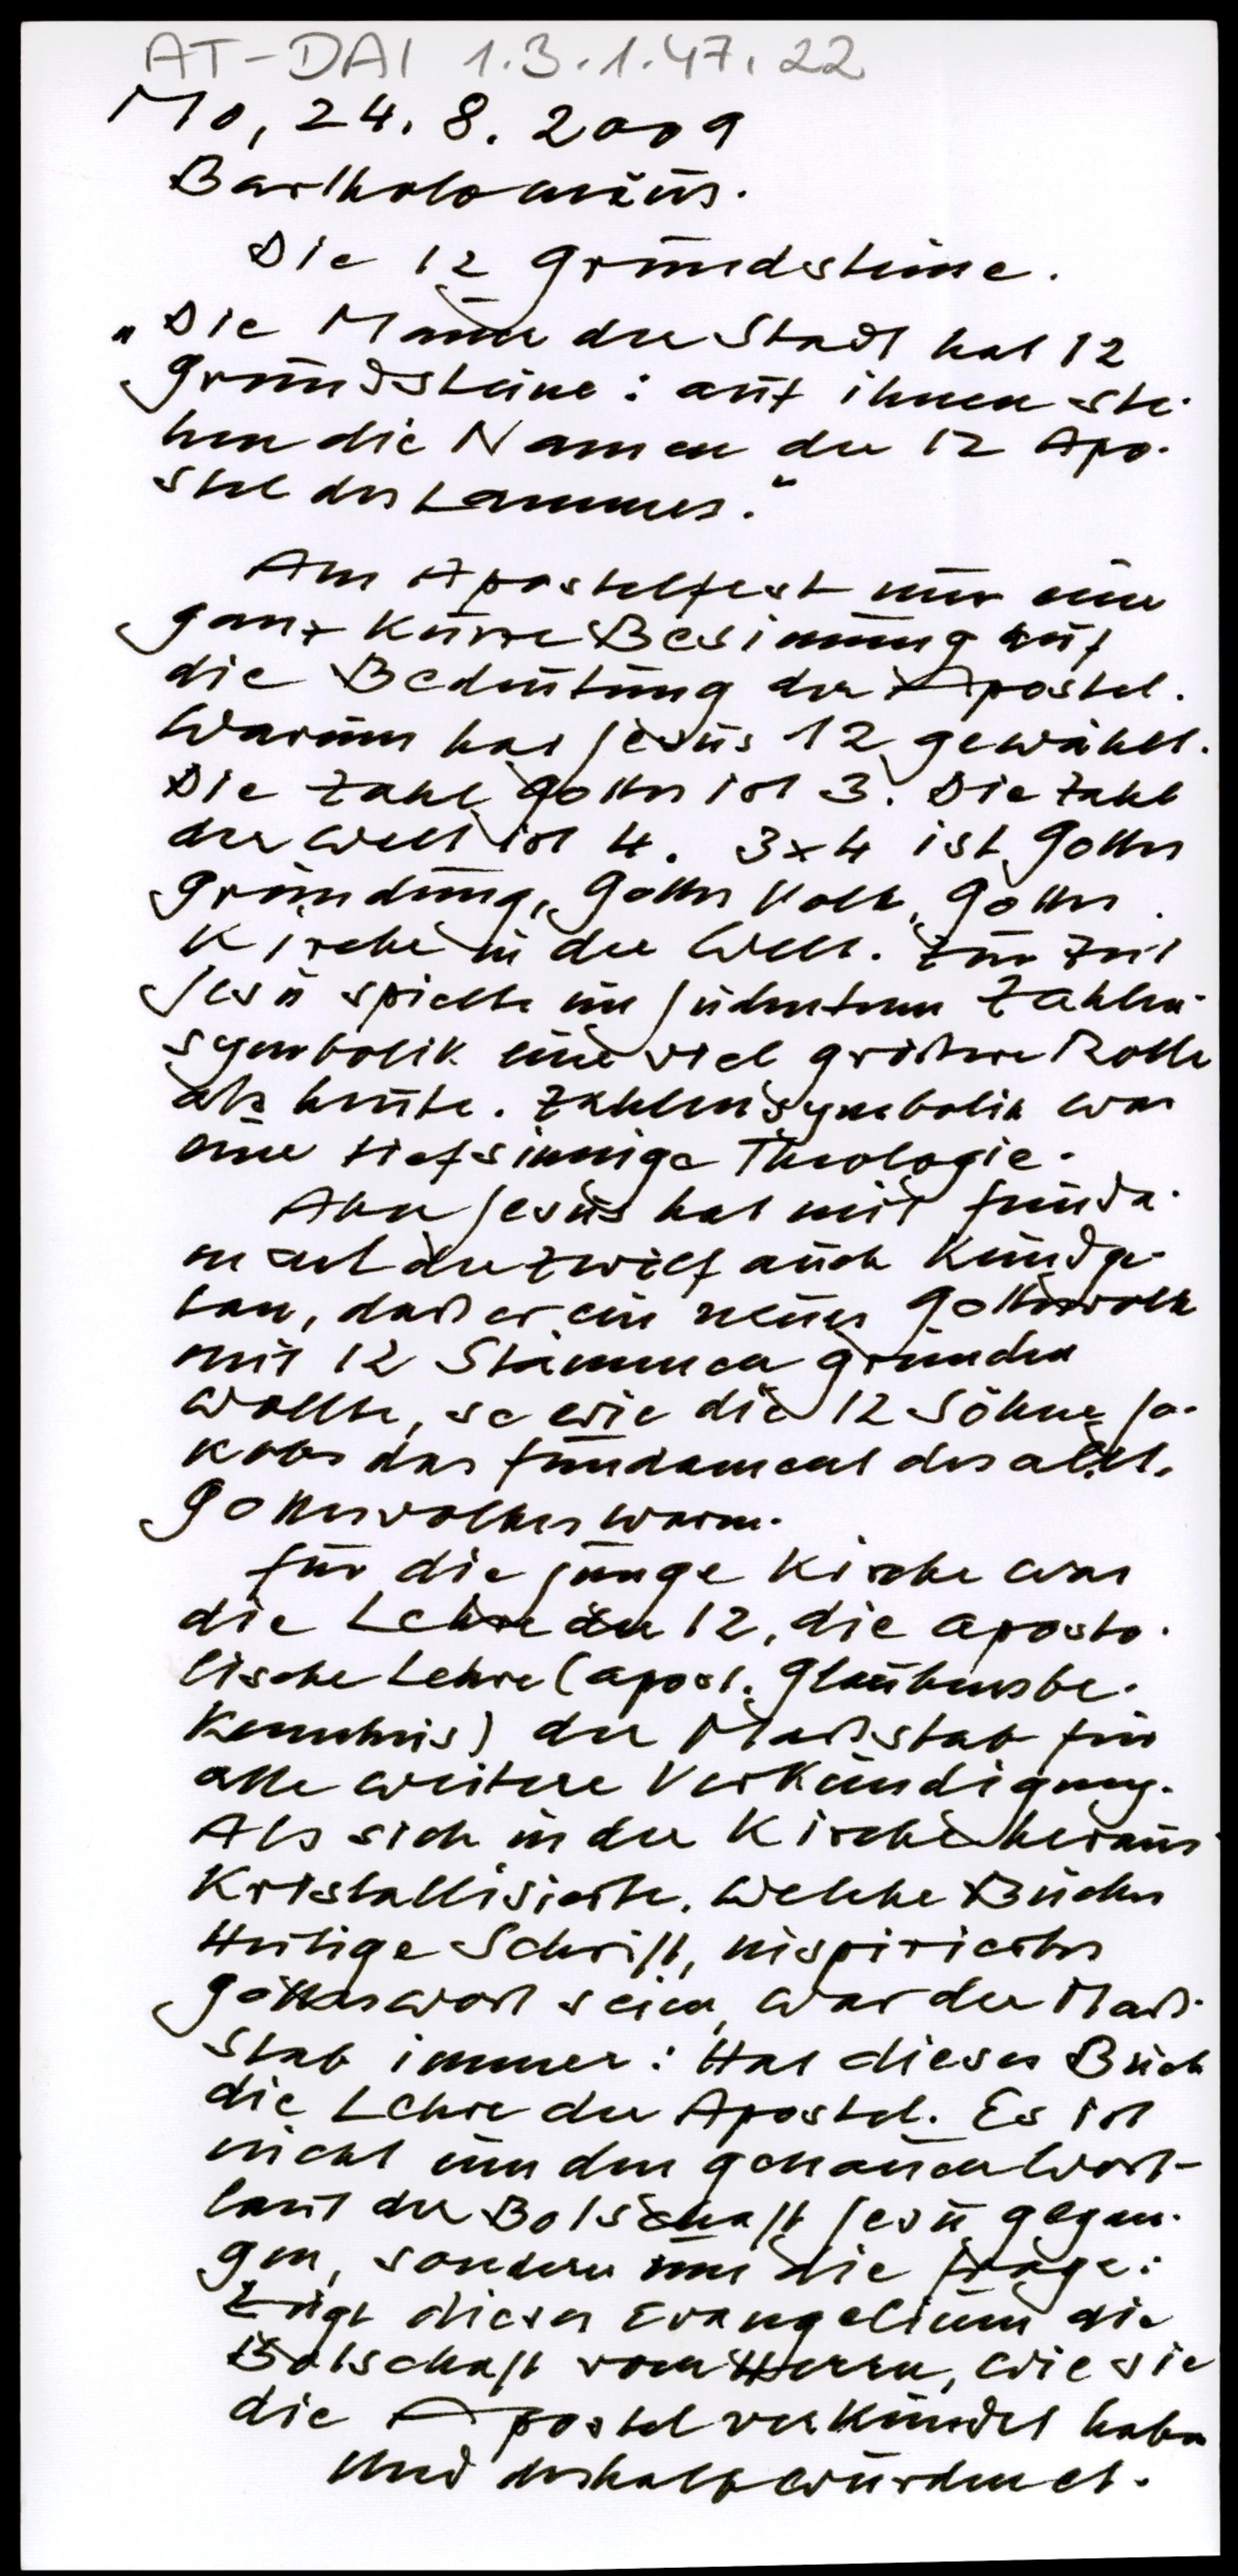 AT-DAI 1.3.1.47.22
Mo, 24.8.2009
Bartholomäus.
Die 12 Grundsteine.
"Die Mauer der Stadt hat 12
Grundsteine: auf ihnen ste-
hen die Namen der 12 Apo-
stel des Lammes."
Am Apostelfest nur eine
ganz kurze Besinnung auf
die Bedeutung der Apostel.
Warum hat Jesus 12 gewählt.
Die Zahl Gottes ist 3. Die Zahl
der Welt ist 4. 3x4 ist Gottes
Gründung, Gottes Volk, Gottes
Kirche in der Welt. Zur Zeit
Jesu spielte im Judentum Zahlen-
symbolik eine viel größere Rolle
als heute. Zahlensymbolik war
eine tiefsinnige Theologie.
Aber Jesus hat mit Funda-
ment der Zwölf auch kundge-
tan, daß er ein neues Gottesvolk
mit 12 Stämmen gründen
wollte, so wie die 12 Söhne Ja-
kobs das Fundament des altt.
Gottesvolkes waren.
Für die junge Kirche war
die Lehre der 12, die aposto-
lische Lehre (apost. Glaubensbe-
kenntnis) der Maßstab für
alle weitere Verkündigung.
Als sich in der Kirche heraus
kristallisierte, welche Bücher
Heilige Schrift, inspiriertes
Gotteswort seien, war der Maß-
stab immer: Hat dieses Buch
die Lehre der Apostel. Es ist
nicht um den genauen Wort-
laut der Botschaft Jesu gegan-
gen, sondern um die Frage:
Trägt dieses Evangelium die
Botschaft vom Herrn, wie sie
die Apostel verkündet haben
und deshalb wurden